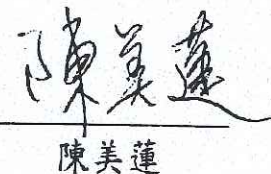 陳美蓮
陳美蓮